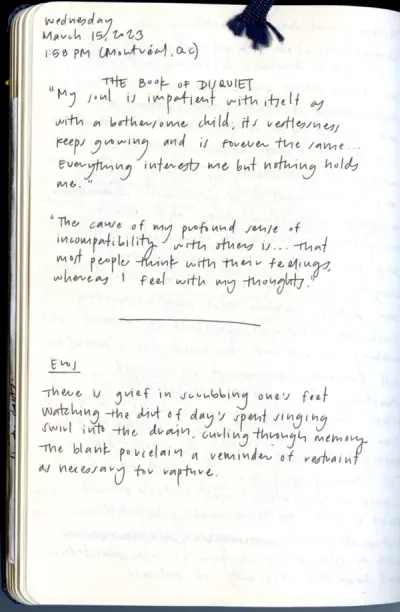 Wednesday
March 15, 2023
1:58 PM (Montréal, QC)
THE BOOK OF DISQUIET
"My soul is impatient with itself as
with a bothersome child; its restlessness
keeps growing and is forever the same...
Everything interests me but nothing holds
me."
"The cause of my profound sense of
incompatibility with others is... that
most people think with their feelings,
whereas I feel with my thoughts."
Eros
There is grief in scrubbing one's feet
watching the dirt of day's spent singing
swirl into the drain, curling through memory
The blank porcelain a reminder of restraint
as necessary for rapture.